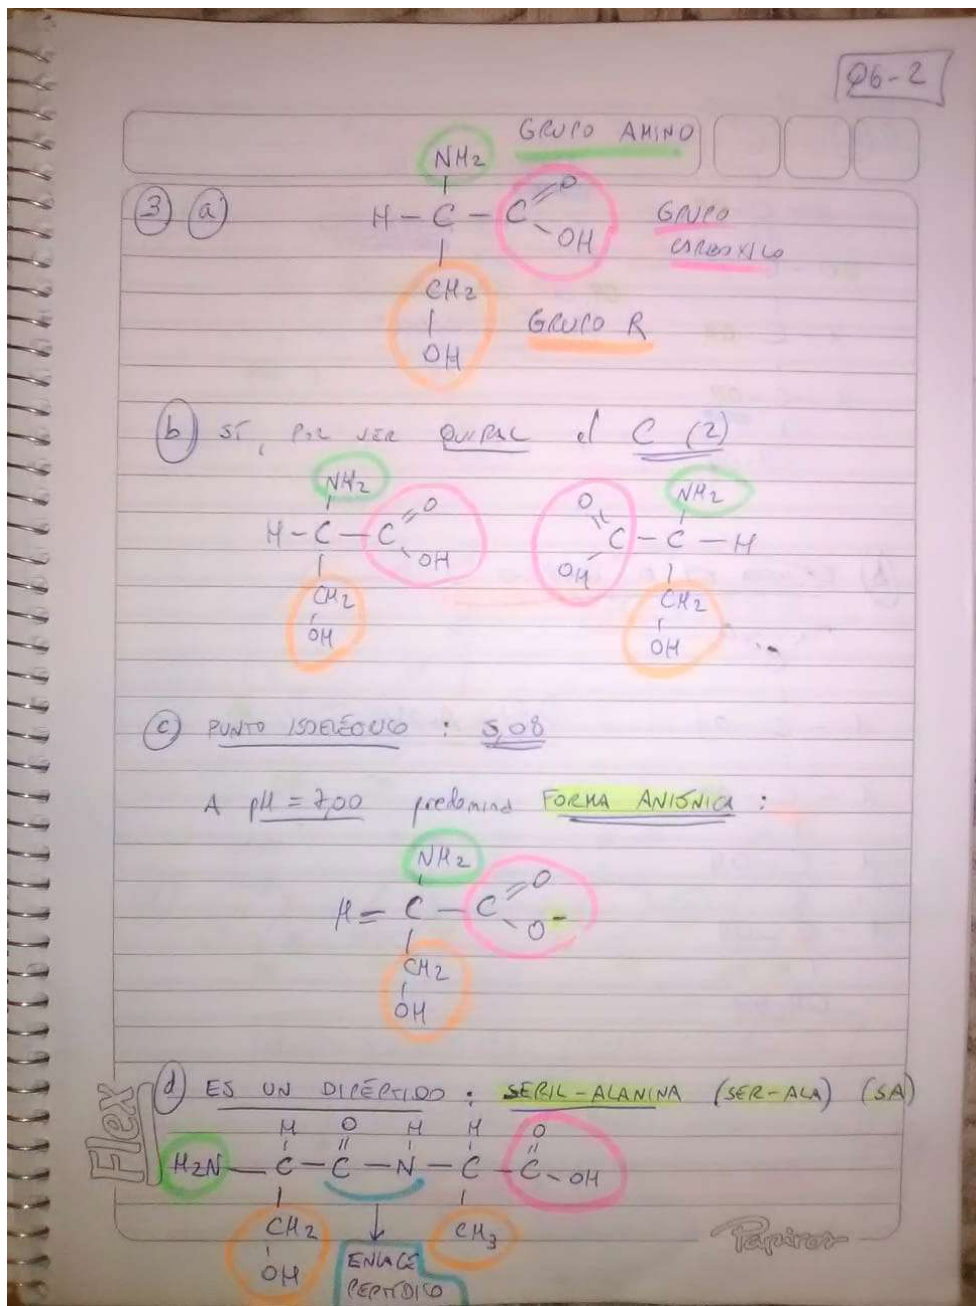 Q6-2
GRUPO AMINO
NH2
3) a) H - C - C = O
OH
GRUPO
CARBOXILO
CH2
OH
GRUPO R
b) SÍ, POR SER QUIRAL el C (2)
NH2 NH2
H - C - C = O O = C - C - H
OH OH
CH2 CH2
OH OH
c) PUNTO ISOELÉCTRICO : 5,08
A pH = 7,00 predomina FORMA ANIÓNICA :
NH2
H = C - C = O
O -
CH2
OH
d) ES UN DIPÉPTIDO : SERIL-ALANINA (SER-ALA) (SA)
H O H H O
H2N - C - C - N - C - C - OH
CH2 CH3
OH
ENLACE
PEPTÍDICO
Flex
Papiros